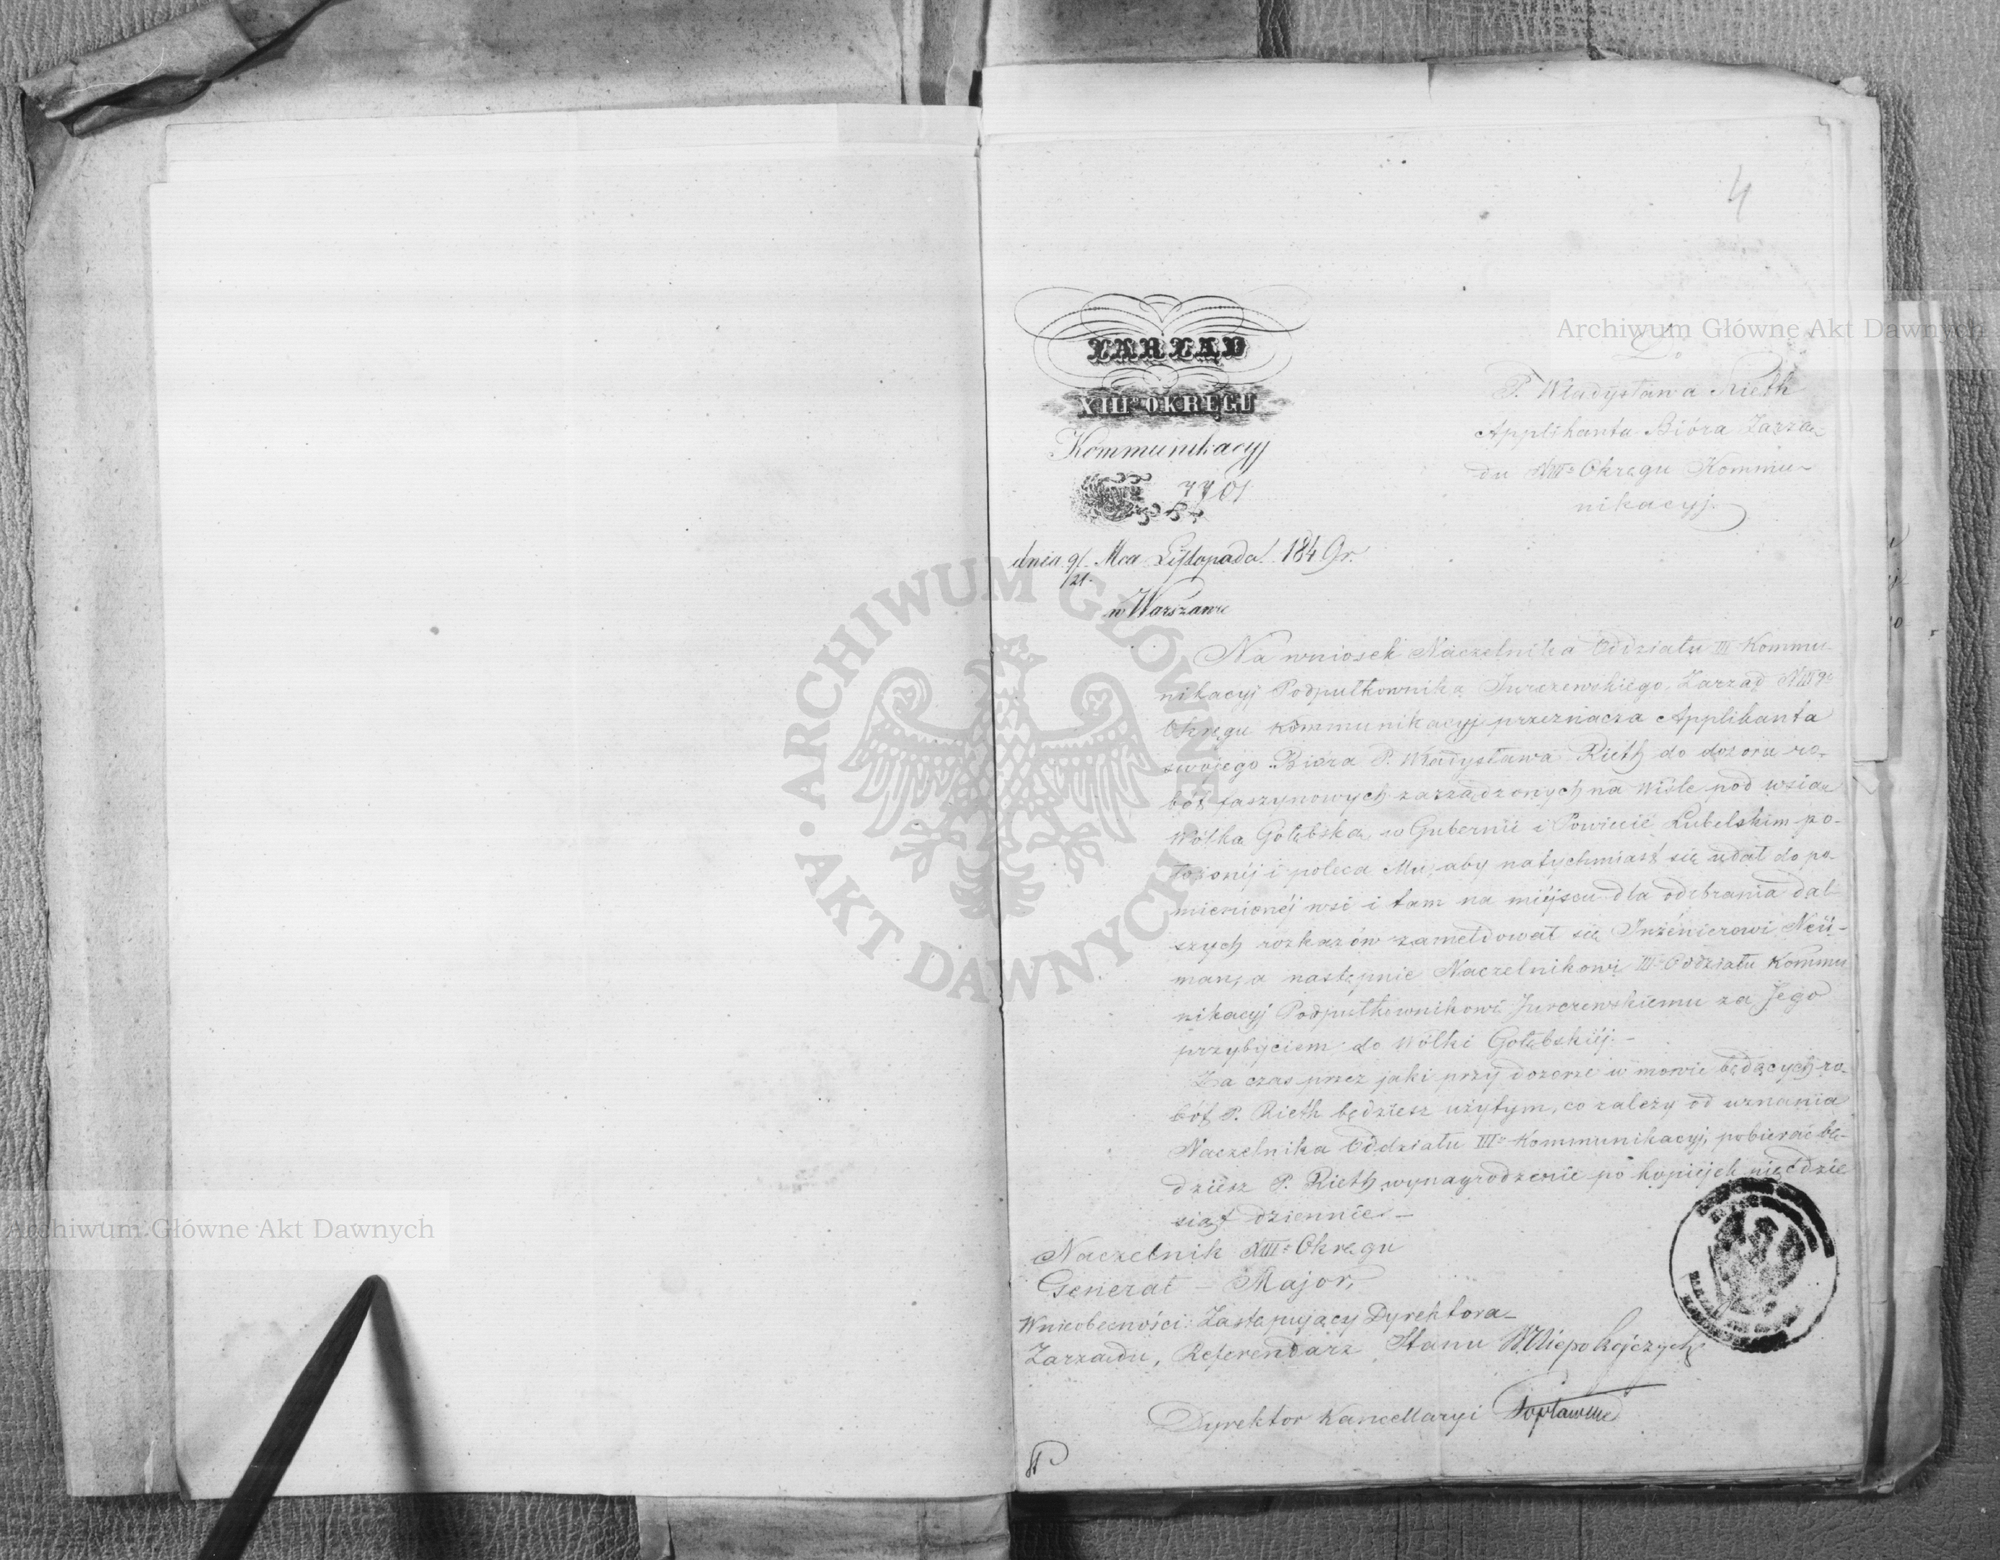 4
ZARZĄD
XIII° OKRĘGU
Kommunikacyj
7701
dnia 9/21 Mca Listopada 1849 r.
w Warszawie
Do
P. Władysława Rieth
Applikanta Bióra Zarzą-
du XIII° Okręgu Kommu-
nikacyj.
Na wniosek Naczelnika Oddziału III° Kommu-
nikacyj Podpułkownika Jurczewskiego, Zarząd XIII°
Okręgu Kommunikacyj przeznacza Applikanta
swojego Bióra P. Władysława Rieth do dozoru ro-
bót faszynowych zarządzonych na Wiśle pod wsią
Wólka Gołębska w Gubernii i Powiecie Lubelskim po-
łożonéj i poleca Mu, aby natychmiast się udał do po-
mienionéj wsi i tam na miéjscu dla odebrania dal-
szych rozkazów zameldował się Inżenierowi Neü-
man, a następnie Naczelnikowi III° Oddziału Kommu
nikacyj Podpułkownikowi Jurczewskiemu za Jego
przybyciem do Wólki Gołębskiéj. –
Za czas przez jaki przy dozorze w mowie będących ro-
bót P. Rieth będziesz użytym, co zależy od uznania
Naczelnika Oddziału III° Kommunikacyj, pobierać bę-
dziesz P. Rieth wynagrodzenie po kopiejek pięćdzie
siąt dziennie. –
Naczelnik XIII° Okręgu
Generał – Major,
W nieobecności: Zastępujący Dyrektora
Zarządu, Referendarz Stanu W. Niepokojczycki
Dyrektor Kancellaryi Popławski
Archiwum Główne Akt Dawnych
Archiwum Główne Akt Dawnych
ARCHIWUM GŁÓWNE AKT DAWNYCH